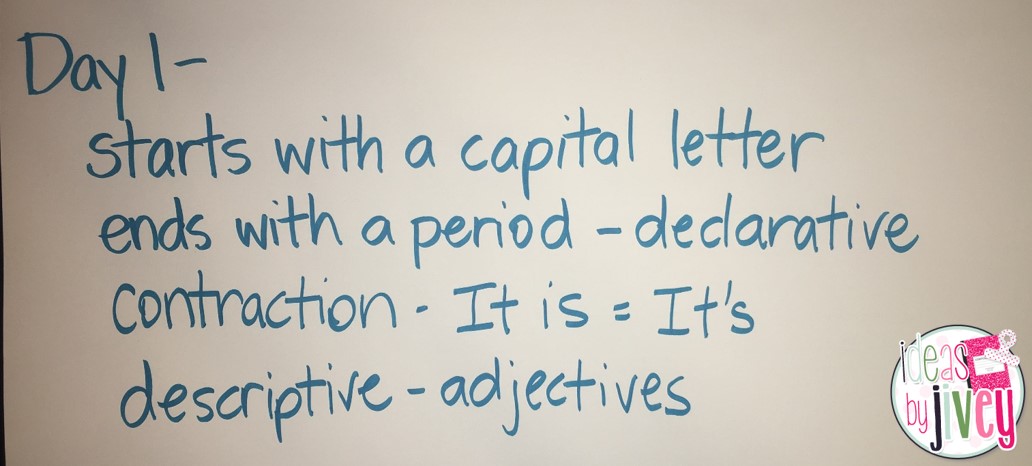 Day 1-
starts with a capital letter
ends with a period - declarative
contraction - It is = It's
descriptive - adjectives
ideas
by jivey